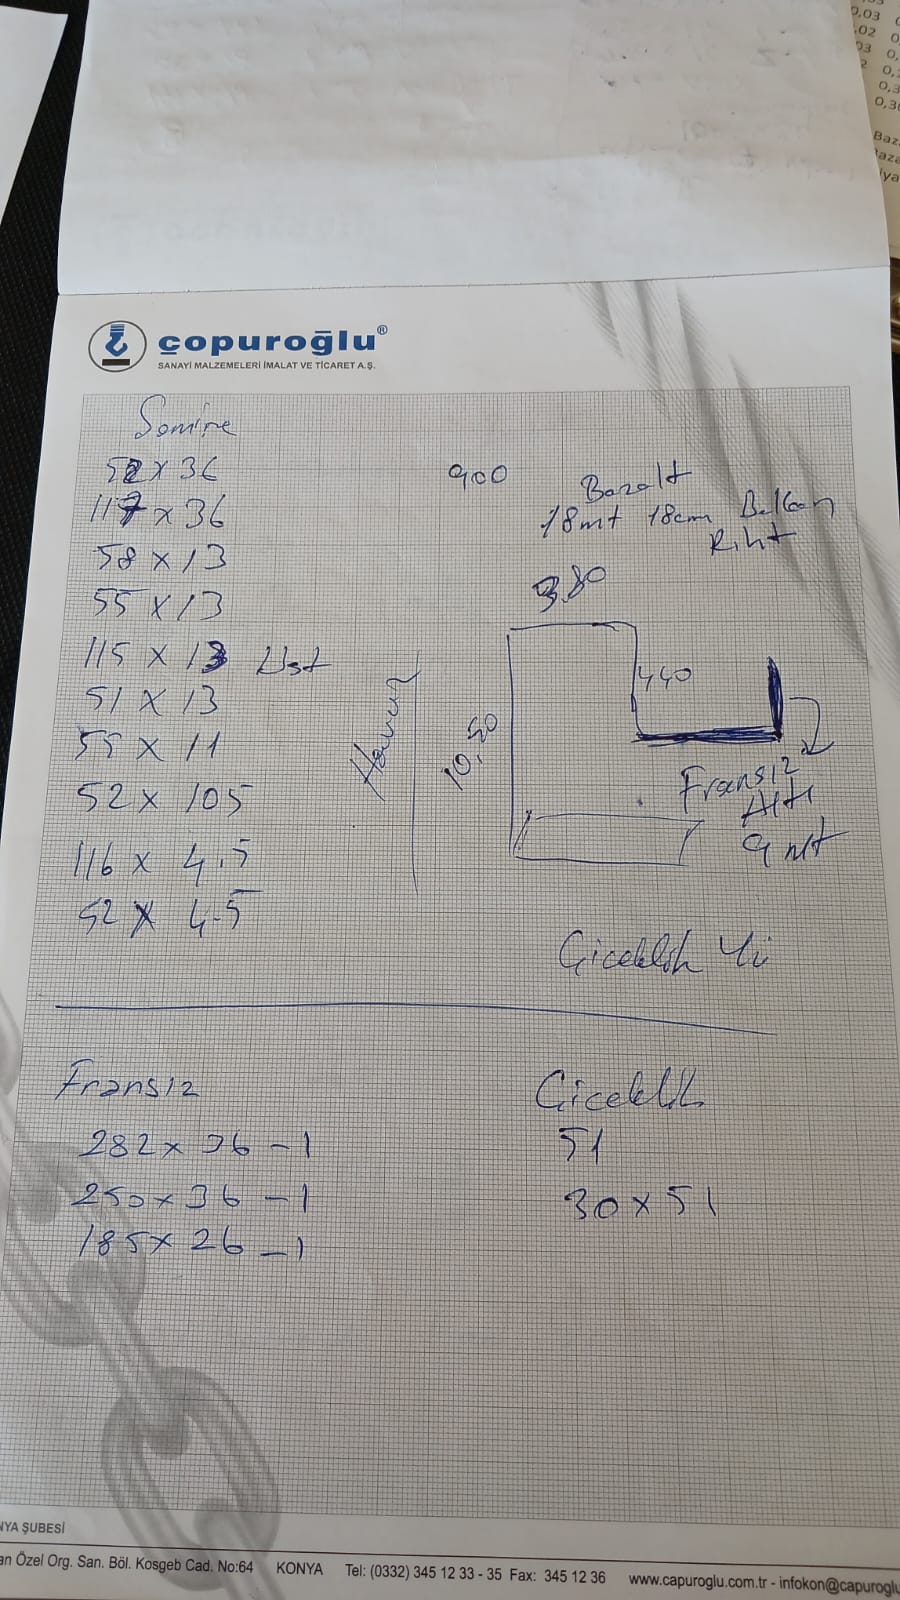 0,03
,02
03
0,3
Baz
çopuroğlu®
SANAYİ MALZEMELERİ İMALAT VE TİCARET A.Ş.
Somine
52 x 36
117 x 36
58 x 13
55 x 13
115 x 13 Üst
51 x 13
55 x 11
52 x 105
116 x 4.5
52 x 4.5
900
Bazalt
18mt 18cm Balkon
Riht
9.80
440
10,50
Havuz
Fransız
Altı
9 mt
Çiceklik
Fransız
282 x 36 - 1
250 x 36 - 1
185 x 26 - 1
Çiceklik
51
30 x 51
NYA ŞUBESİ
an Özel Org. San. Böl. Kosgeb Cad. No:64 KONYA Tel: (0332) 345 12 33 - 35 Fax: 345 12 36 www.capuroglu.com.tr - infokon@capuroglu